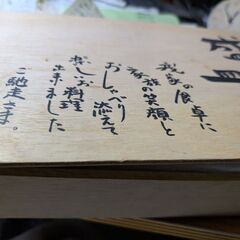 我が家の食卓に
家族の笑顔と
おしゃべり添えて
楽しいお料理
出来ました
ご馳走さま。